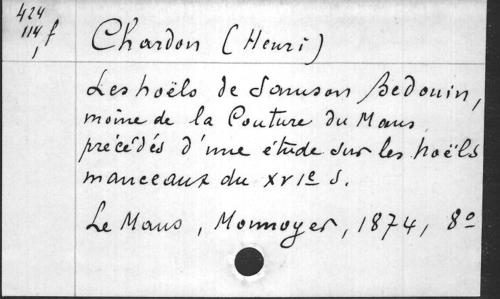 424
114, f
1
Chardon (Henri)
Les noëls de Samson Bedouin,
moine de la Couture du Mans
précédés d'une étude sur les noëls
manceaux du XVIe s.
Le Mans, Monnoyer, 1874, 8º